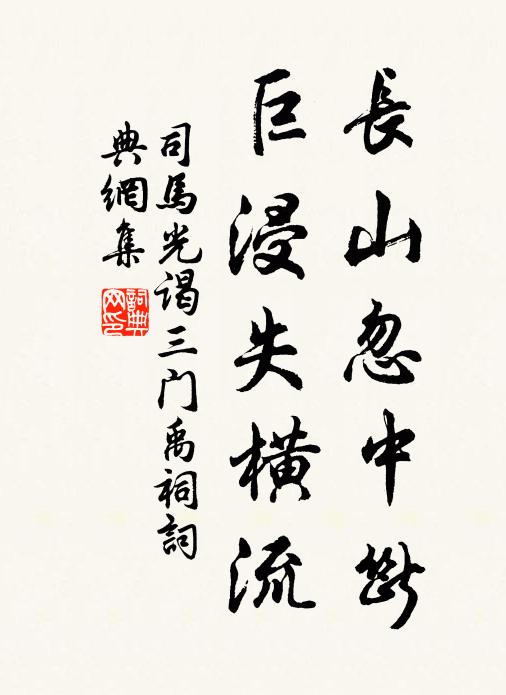 長山忽中斷
巨浸失橫流
司馬光謁三门禹祠詞
典網集
詞典
网印